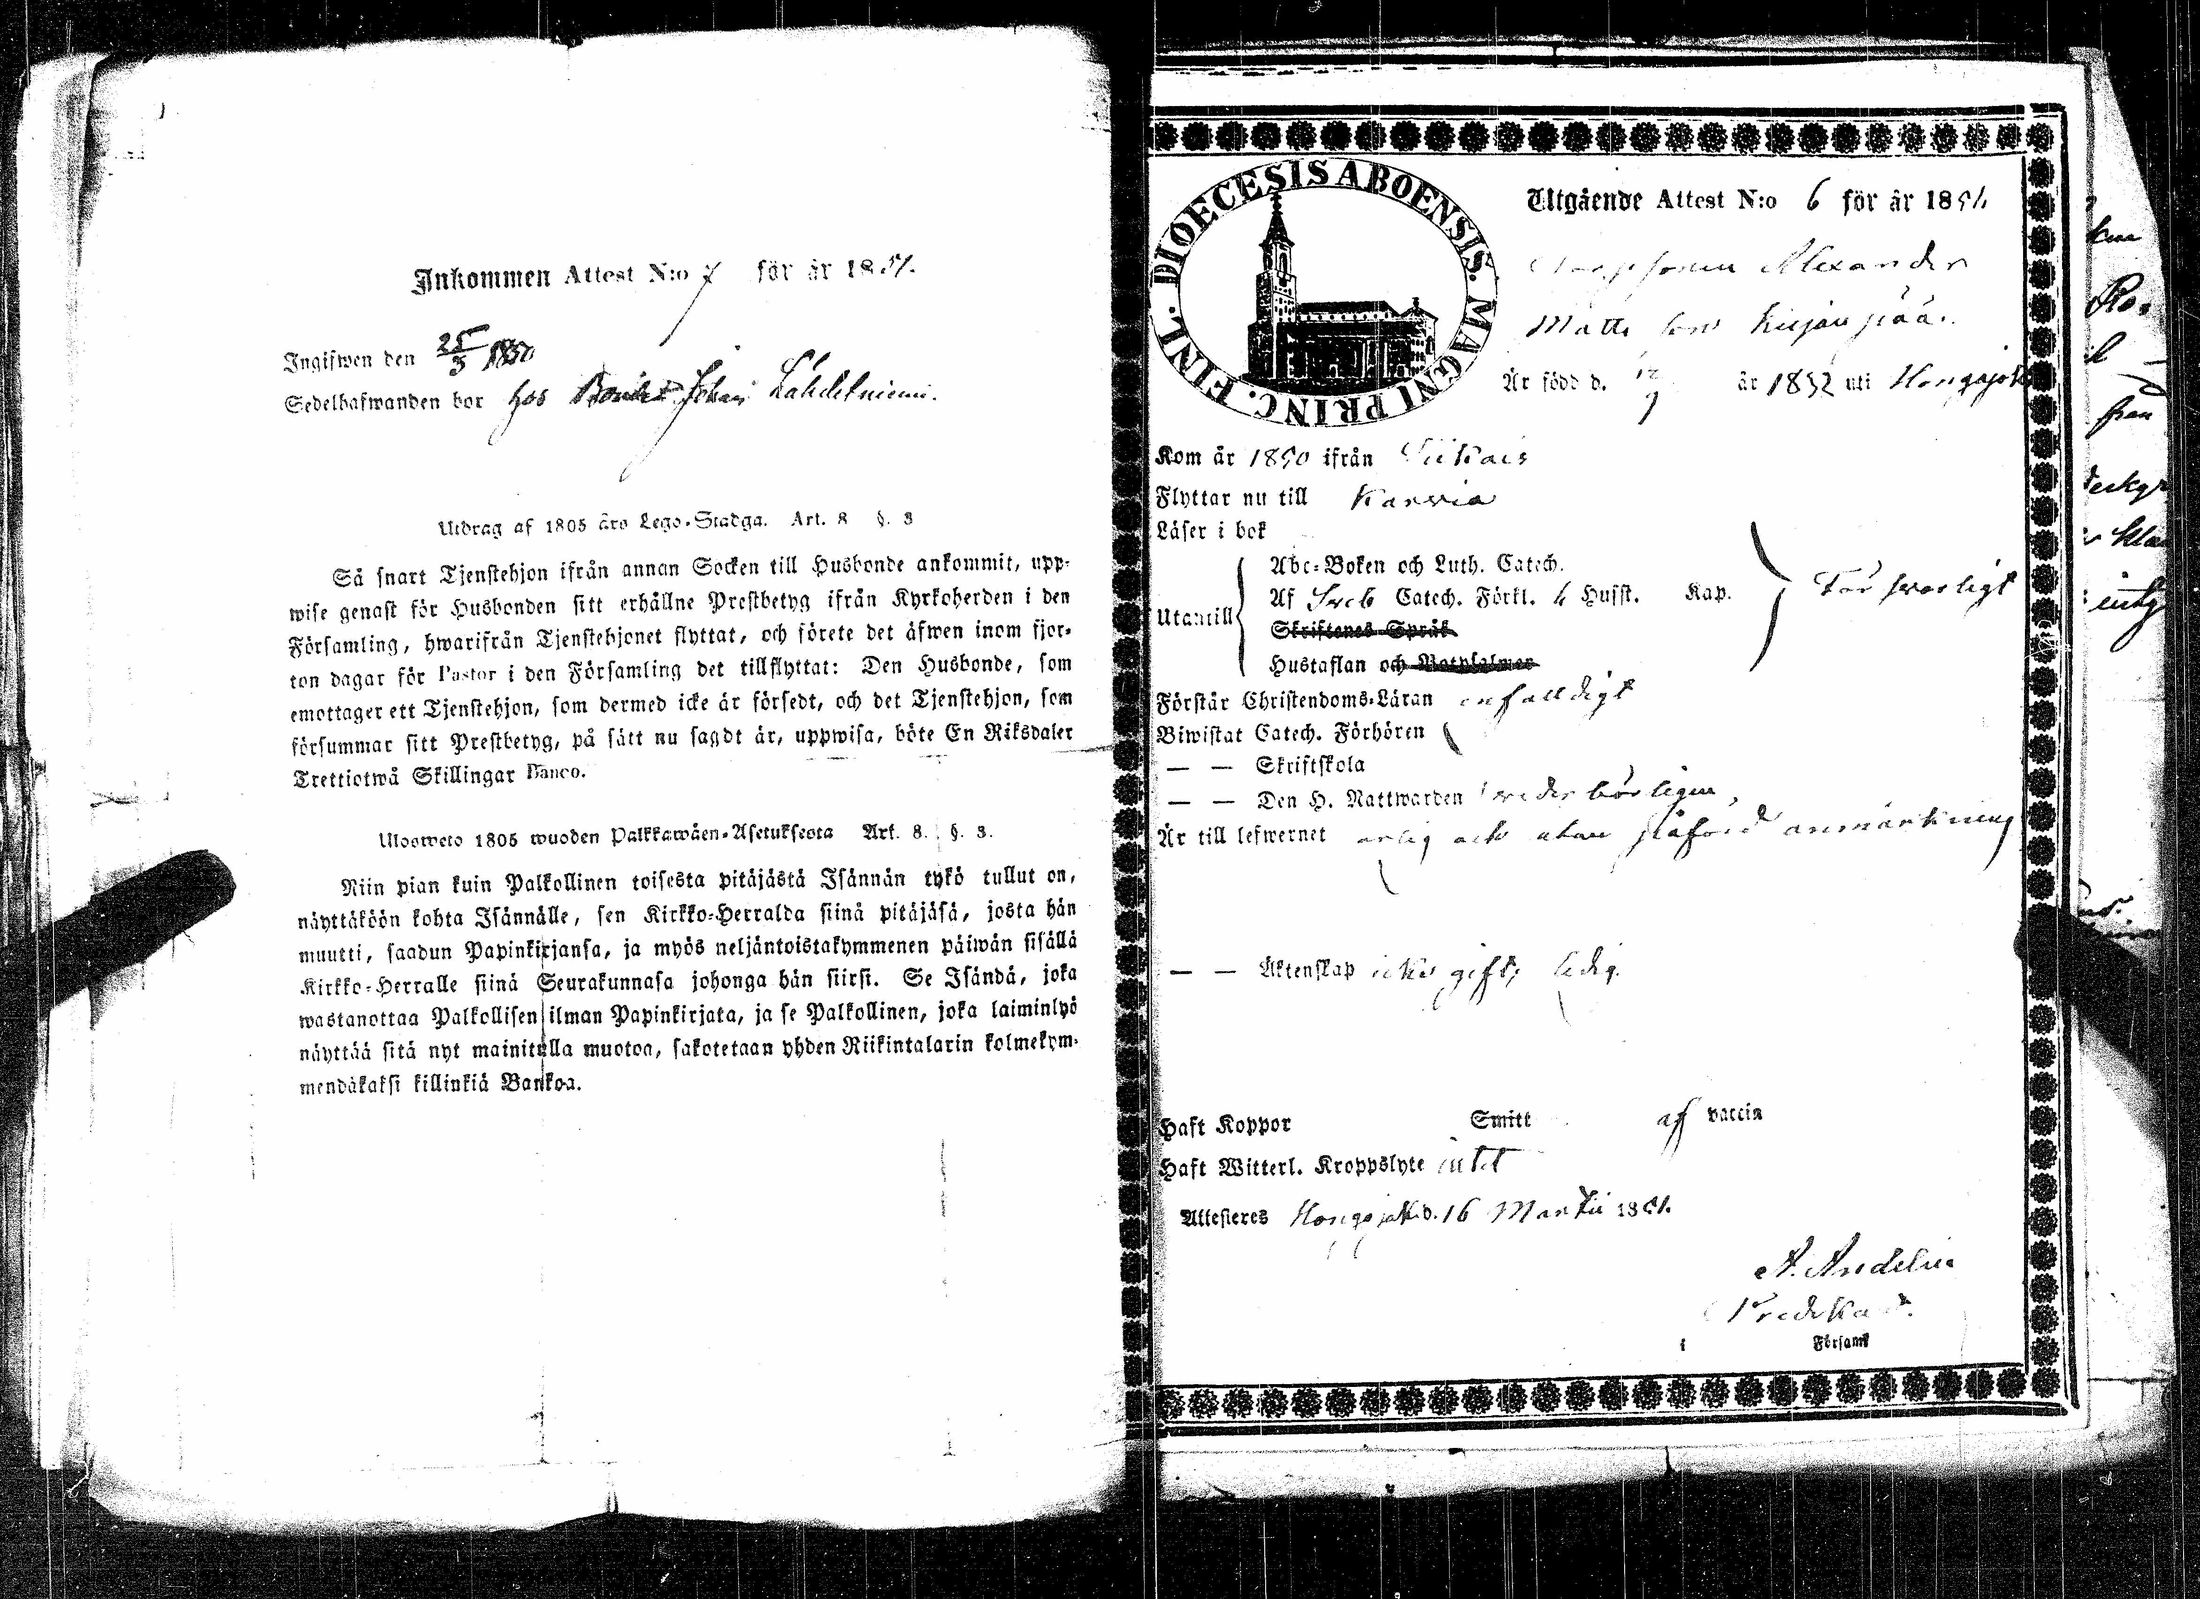 Inkommen Attest N:o 7 för år 1851.
Ingifwen den 25/3 1851
Sedelhafwanden bor hos Bonden Johan Lähdekniemi.
Utdrag af 1805 års Lego-Stadga. Art. 8 §. 3
Så snart Tjenstehjon ifrån annan Socken till Husbonde ankommit, upp-
wise genast för Husbonden sitt erhållne Prestbetyg ifrån Kyrkoherden i den
Församling, hwarifrån Tjenstehjonet flyttat, och förete det äfwen inom fjor-
ton dagar för Pastor i den Församling det tillflyttat: Den Husbonde, som
emottager ett Tjenstehjon, som dermed icke är försedt, och det Tjenstehjon, som
försummar sitt Prestbetyg, på sätt nu sagdt är, uppwisa, böte En Riksdaler
Trettiotwå Skillingar Banco.
Ulosweto 1805 wuoden Palkkawäen-Asetuksesta Art. 8. §. 3.
Niin pian kuin Palkollinen toisesta pitäjästä Isännän tykö tullut on,
näyttäköön kohta Isännälle, sen Kirkko-Herralda siinä pitäjäsä, josta hän
muutti, saadun Papinkirjansa, ja myös neljäntoistakymmenen päiwän sisällä
Kirkko-Herralle siinä Seurakunnasa johonga hän siirsi. Se Isändä, joka
wastanottaa Palkollisen ilman Papinkirjata, ja se Palkollinen, joka laiminlyö
näyttää sitä nyt mainitulla muotoa, sakotetaan yhden Riikintalarin kolmekym-
mendäkaksi killinkiä Bankoa.
DIOECESIS ABOENSIS. MAGNI PRINC. FINL.
Utgående Attest N:o 6 för år 1851
Alexander
Matts son Kirjanpää.
Är född d. år 1832 uti Hongojoki
Kom år 1850 ifrån Siikais
Flyttar nu till Karvia
Läser i bok
Utantill
Abc-Boken och Luth. Catech.
Af Sveb Catech. Förkl. h Husst. Kap.
Försvarligt
Skriftenes Språk
Hustaflan och Botpsalmer
Förstår Christendoms-Läran enfaldigt
Biwistat Catech. Förhören
— — Skriftskola
— — Den H. Nattwarden vederbörligen,
Är till lefwernet ärlig och utan påförd anmärkning
— — Äktenskap icke gift, ledig.
Haft Koppor Smitt af vaccin
Haft Witterl. Kroppslyte intet
Attesteres Hongojoki d. 16 Martii 1851.
A. Andelin
Predikant.
i Församl